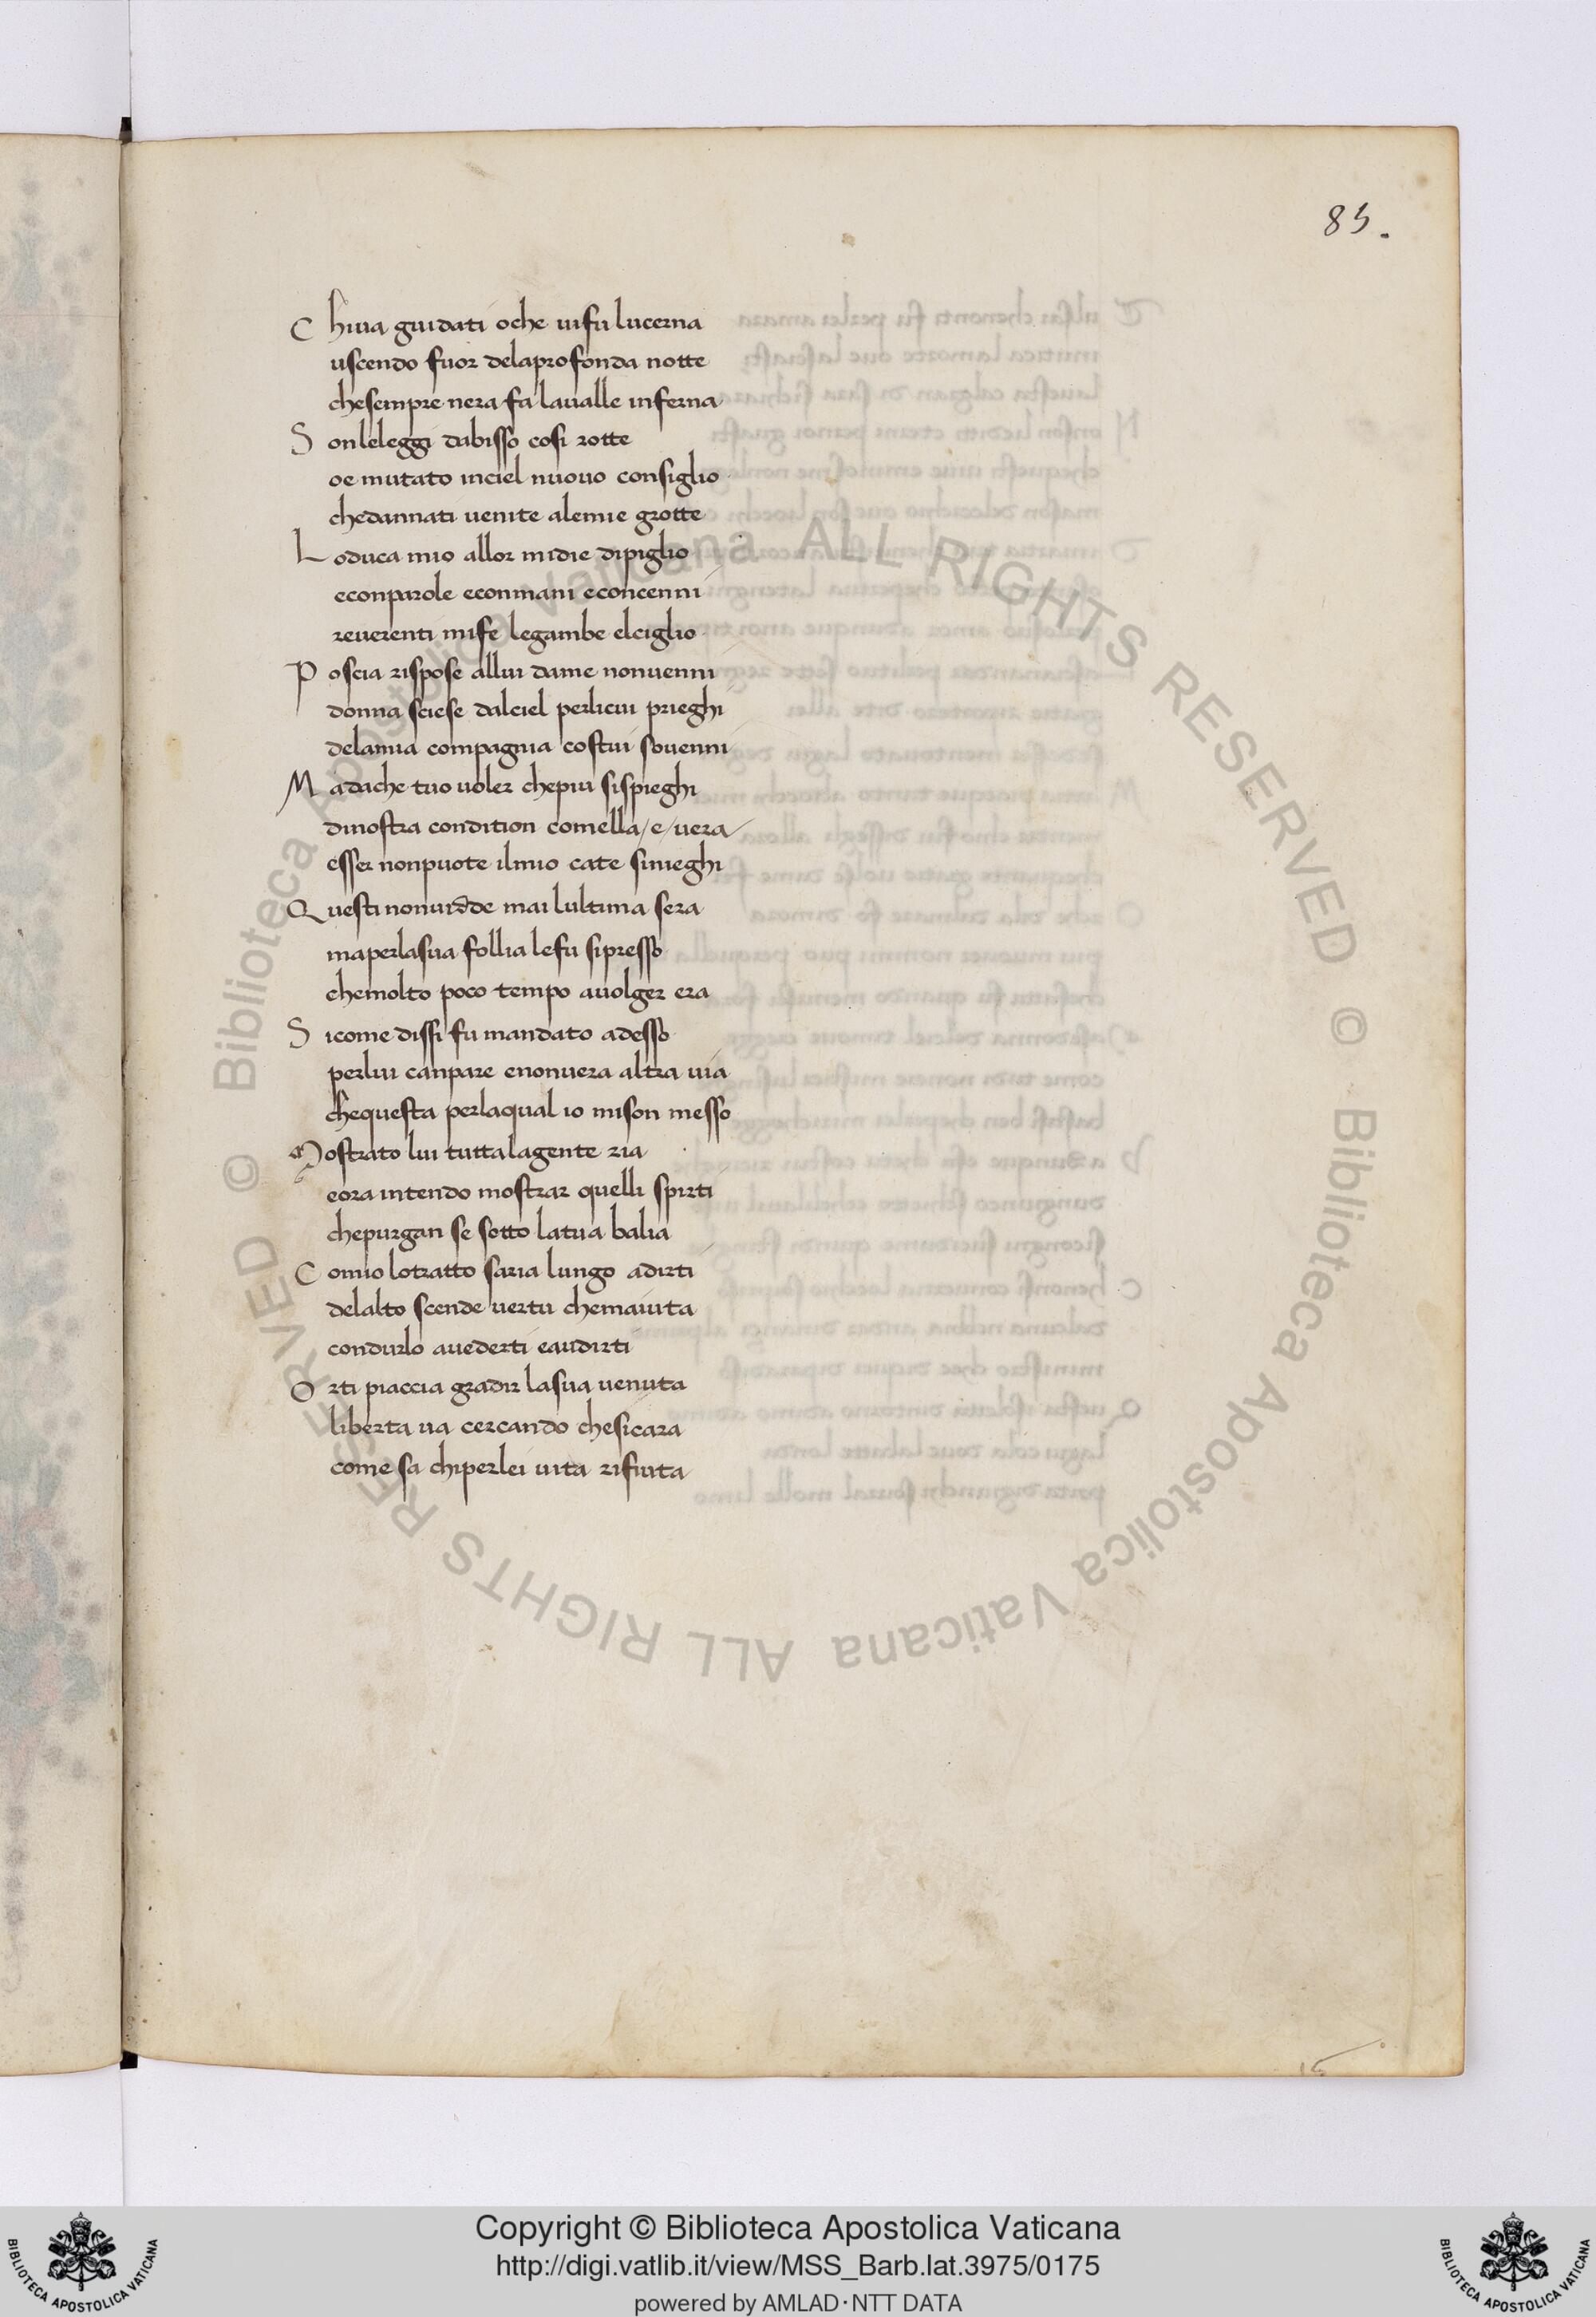 85.
C hiua guidati oche uifu lucerna
uscendo fuor delaprofonda notte
chesempre nera fa laualle inferna
S onleleggi dabisso cosi rotte
oe mutato inciel nuouo consiglio
chedannati uenite alemie grotte
L oduca mio allor midie dipiglio
econparole econmani econcenni
reuerenti mife legambe elciglio
P oscia rispose allui dame nonuenni
donna sciese dalciel perlicui prieghi
delamia compagnia costui souenni
M adache tuo uoler chepiu sispieghi
dinostra condition comella/e/uera
esser nonpuote ilmio cate sinieghi
Q uesti nonuidde mai lultima sera
maperlasua follia lefu sipresso
chemolto poco tempo auolger era
S icome dissi fu mandato adesso
perlui canpare enonuera altra uia
chequesta perlaqual io mison messo
M ostrato lui tuttalagente ria
eora intendo mostrar quelli spirti
chepurgan se sotto latua balia
C omio lotratto saria lungo adirti
delalto scende uertu chemaiuta
condurlo auederti eaudirti
O rti piaccia gradir lasua uenuta
liberta ua cercando chesicara
come sa chiperlei uita rifiuta
15
© Biblioteca Apostolica Vaticana ALL RIGHTS RESERVED © Biblioteca Apostolica Vaticana ALL RIGHTS RESERVED
Copyright © Biblioteca Apostolica Vaticana
http://digi.vatlib.it/view/MSS_Barb.lat.3975/0175
powered by AMLAD·NTT DATA
BIBLIOTECA APOSTOLICA VATICANA
BIBLIOTECA APOSTOLICA VATICANA